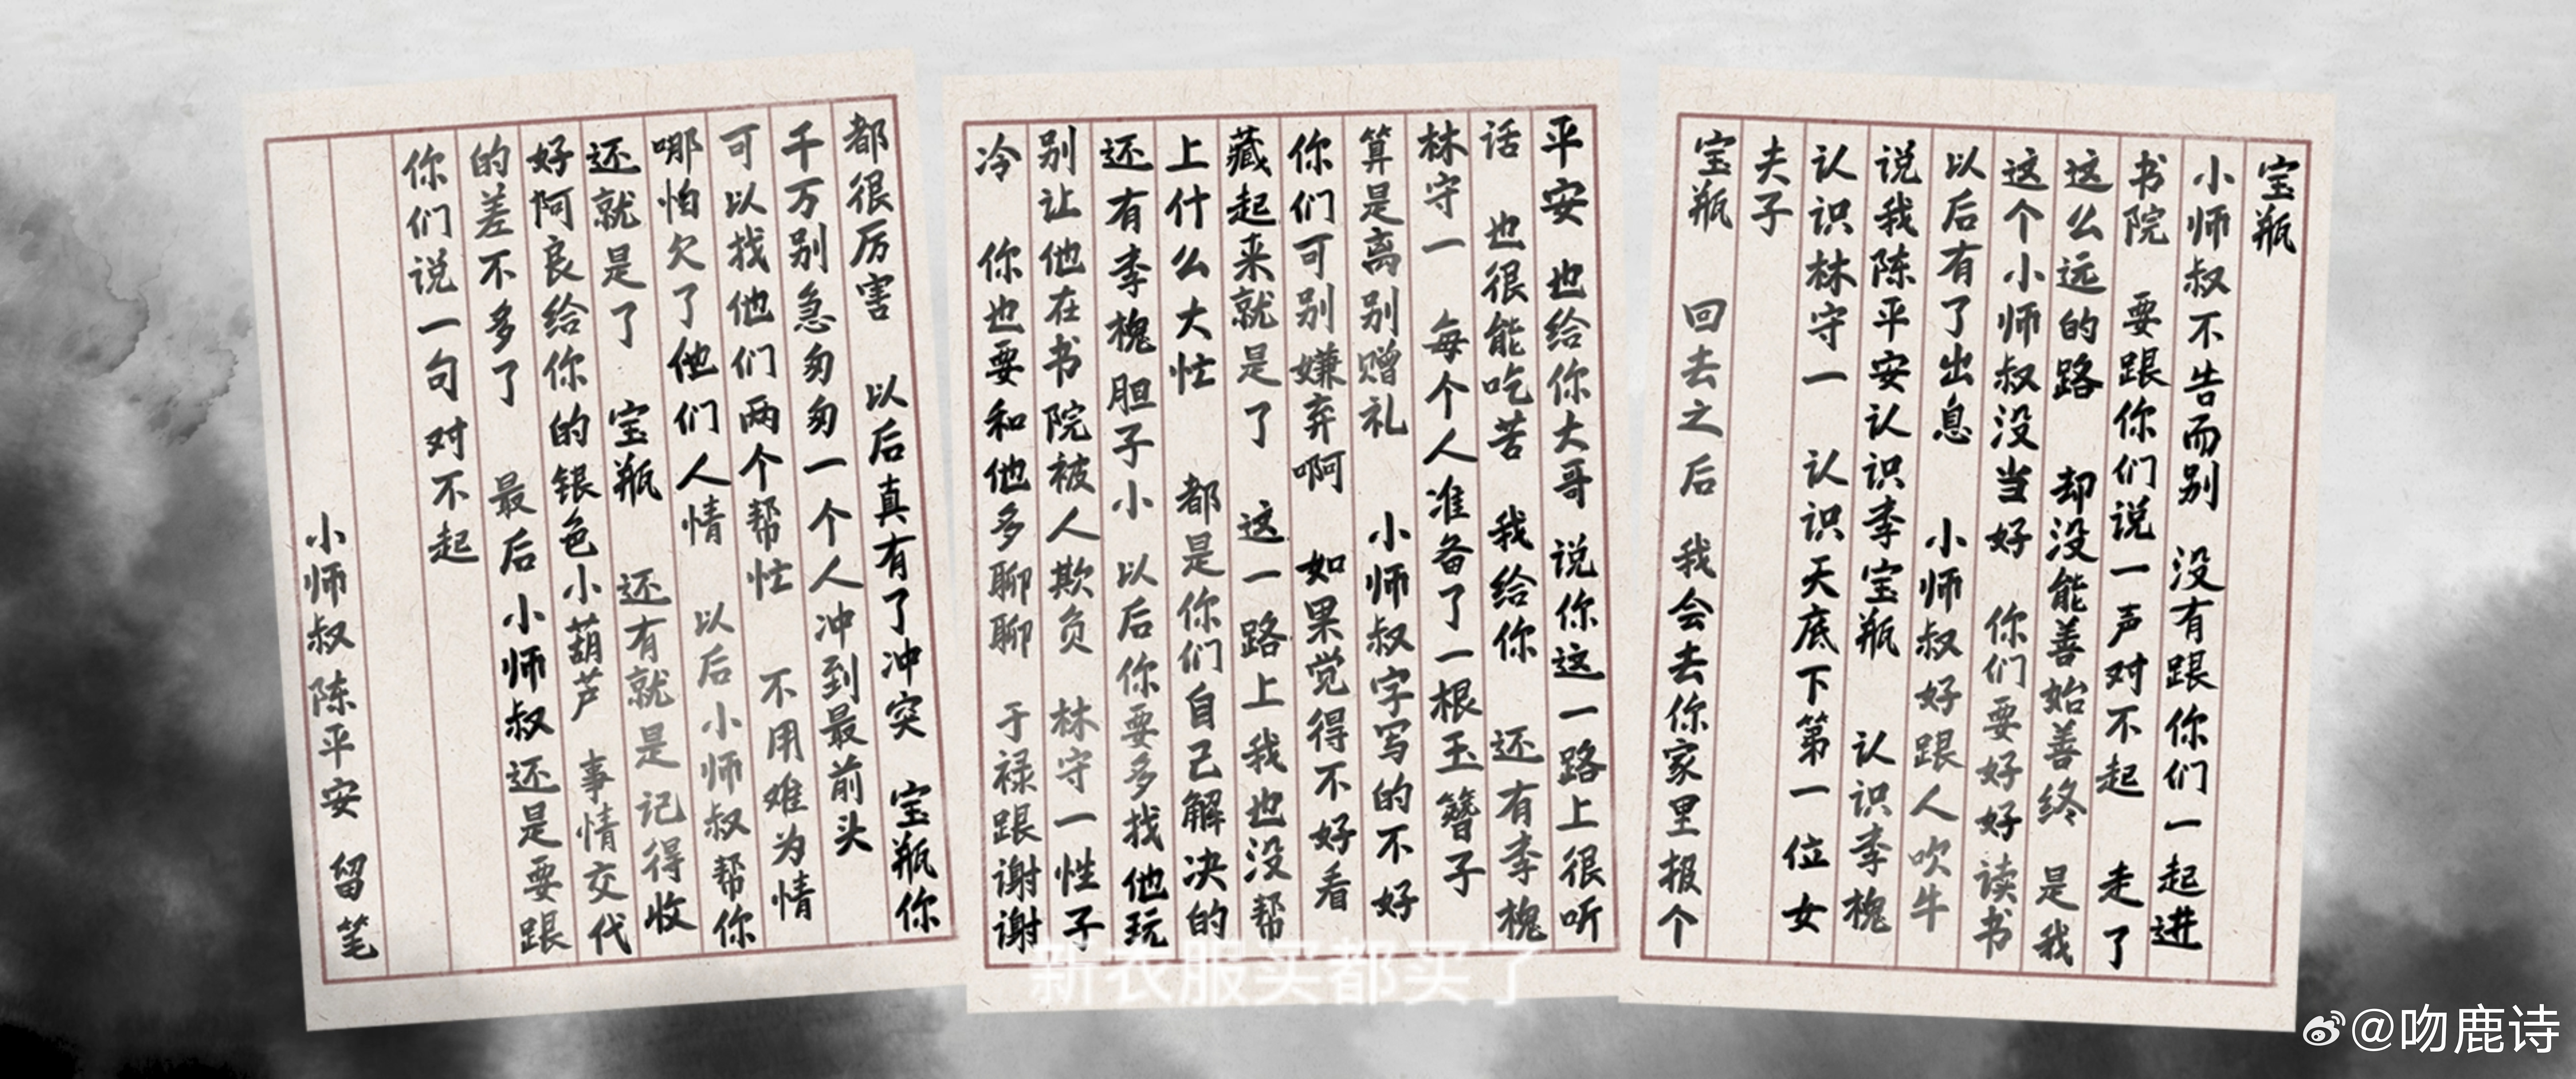 宝瓶
小师叔不告而别 没有跟你们一起进
书院 要跟你们说一声对不起 走了
这么远的路 却没能善始善终 是我
这个小师叔没当好 你们要好好读书
以后有了出息 小师叔好跟人吹牛
说我陈平安认识李宝瓶 认识李槐
认识林守一 认识天底下第一位女
夫子
宝瓶 回去之后 我会去你家里报个
平安 也给你大哥说你这一路上很听
话 也很能吃苦 我给你 还有李槐
林守一 每个人准备了一根玉簪子
算是离别赠礼 小师叔字写的不好
你们可别嫌弃啊 如果觉得不好看
藏起来就是了 这一路上我也没帮
上什么大忙 都是你们自己解决的
还有李槐胆子小 以后你要多找他玩
别让他在书院被人欺负 林守一性子
冷 你也要和他多聊聊 于禄跟谢谢
都很厉害 以后真有了冲突 宝瓶你
千万别急匆匆一个人冲到最前头
可以找他们两个帮忙 不用难为情
哪怕欠了他们人情 以后小师叔帮你
还就是了 宝瓶 还有就是记得收
好阿良给你的银色小葫芦 事情交代
的差不多了 最后小师叔还是要跟
你们说一句对不起
小师叔陈平安 留笔
新衣服买都买了
@吻鹿诗